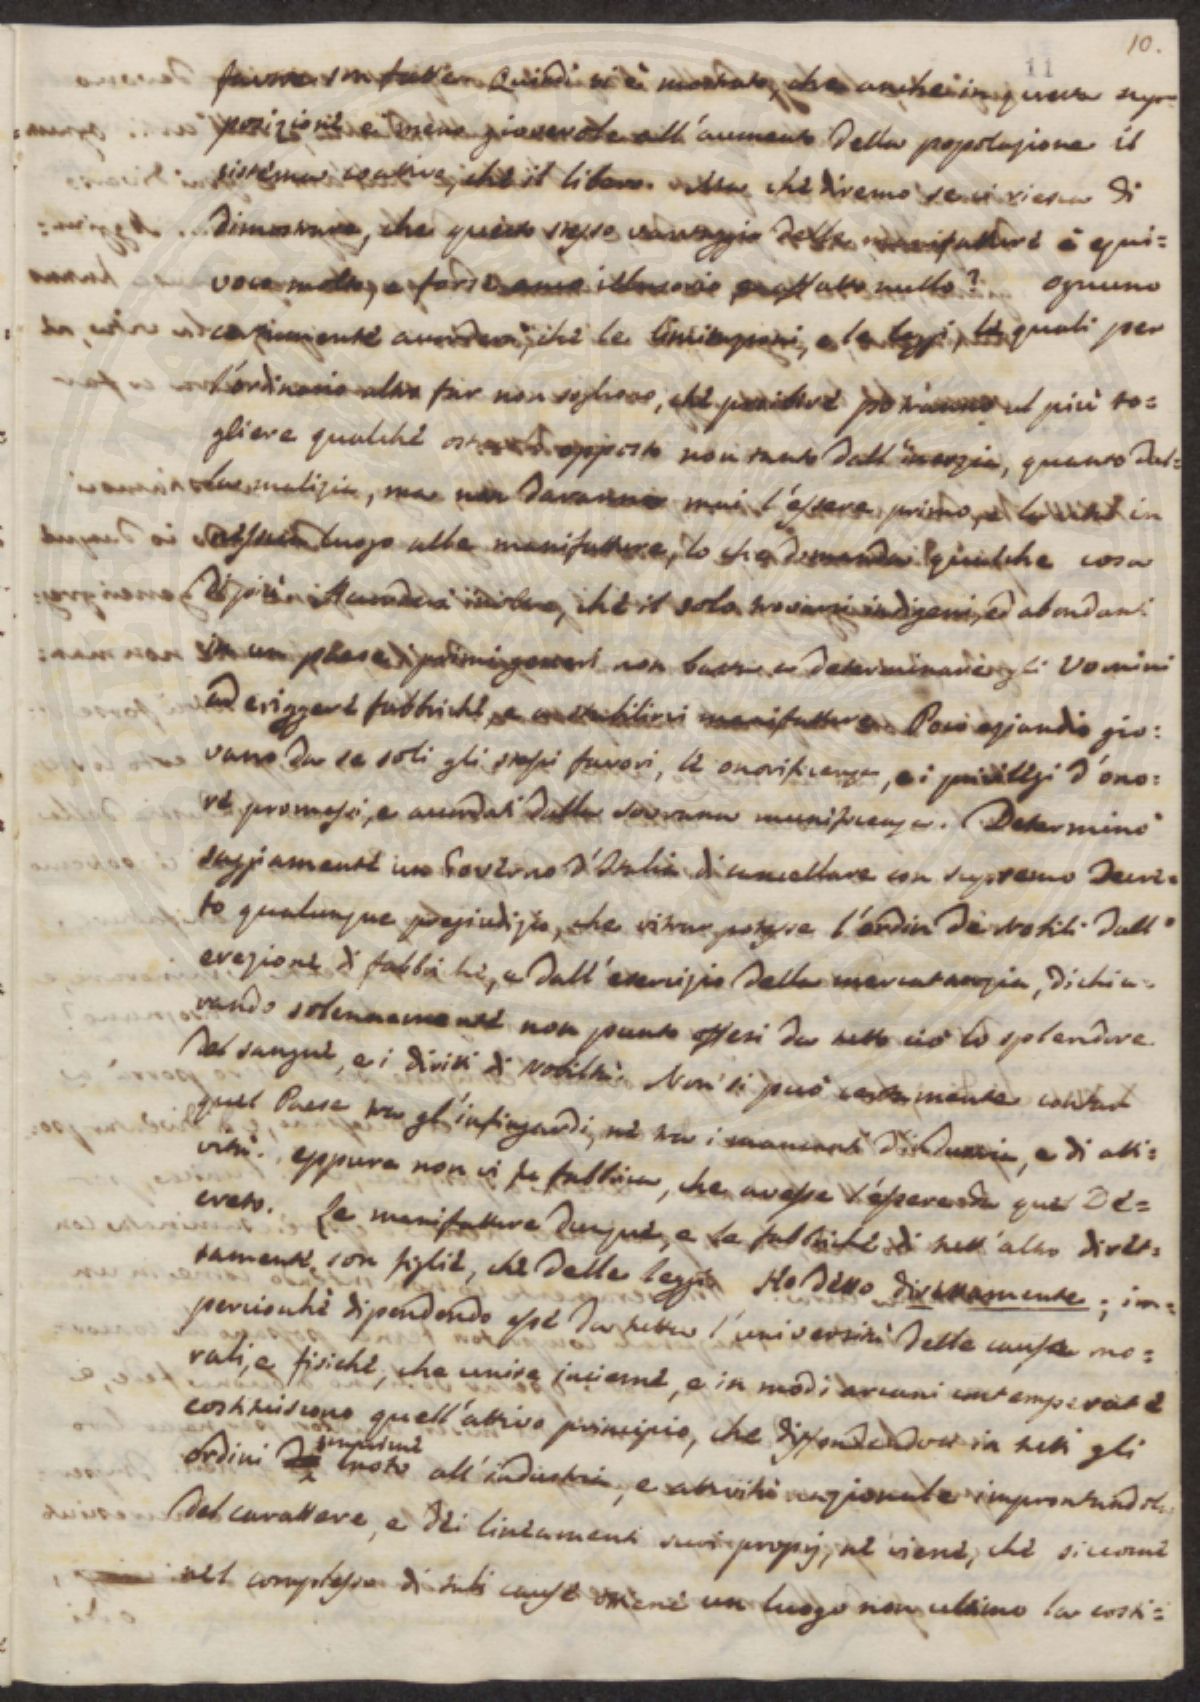 10.
11
favore Quindi si è mostrato, che anche in questa sup=
posizione è meno giovevole all'aumento della popolazione il
sistema coattivo, che il libero. Ma che diremo se ci riesca di
dimostrare, che questo stesso vantaggio delle manifatture è equi=
voco molto, e forse anco illusorio, e affatto nullo? Ognuno
certamente accorderà, che le limitazioni, e le leggi, le quali per
l'ordinario altro far non sogliono, che proibire potranno al più to=
gliere qualche ostacolo opposto non tanto dall'inerzia, quanto dal=
la malizia, ma non daranno mai l'essere primo, e la vita in
nessun luogo alle manifatture, lo che domanda qualche cosa
di più. Accaderà inoltre, che il solo trovarsi indigeni, ed abondanti
in un paese i primi generi non basta a determinare gli Uomini
ad eriggere fabbriche, e a stabilirvi manifatture. Poco eziandio gio=
vano da se soli gli stessi favori, le onorificenze, e i privilegi d'ono=
re promessi, e accordati dalla sovrana munificenza. Determinò
saggiamente un Governo d'Italia di cancellare con supremo Decre=
to qualunque pregiudizio, che ritrar potesse l'ordin de Nobili dall'
erezione di fabbriche, e dall'esercizio della mercatanzia, dichia=
rando solennemente non punto offesi da tutto ciò lo splendore
del sangue, e i diritti di Nobiltà. Non si può certamente contar
quel Paese tra gl'infingardi, né tra i mancanti d'industria, e di atti=
vità. eppure non vi fu fabbrica, che avesse l'essere da quel De=
creto. Le manifatture dunque, e le fabbriche di tutt'altro diret=
tamente, son figlie, che delle leggi. Ho detto direttamente; im=
perciocché dipendendo esse da tutta l'università delle cause mo=
rali, e fisiche, che unite insieme, e in modi arcani contemperate
costituiscono quell'attivo principio, che diffondendosi in tutti gli
imprime
ordini moto all'industria, e attività nazionale improntandola
del carattere, e dei lineamenti suoi proprj, ne viene, che siccome
nel complesso di tali cause ottiene un luogo non ultimo la costi=